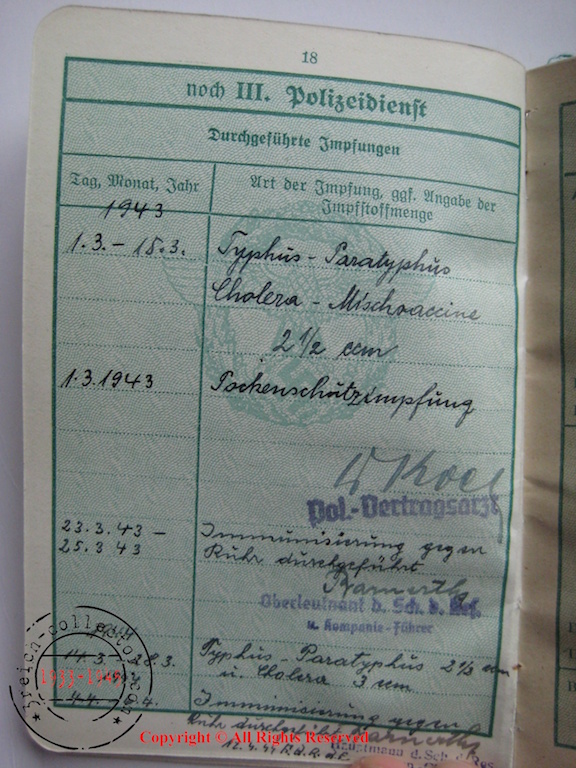 18
noch III. Polizeidienst
Durchgeführte Impfungen
Tag, Monat, Jahr
Art der Impfung, ggf. Angabe der
Impfstoffmenge
1943
1.3. - 15.3.
Typhus - Paratyphus
Cholera - Mischvaccine
2 1/2 ccm
1.3.1943
Pockenschutzimpfung
Pol.-Vertragsarzt
23.3.43 -
25.3 43
Immunisierung gegen
Ruhr durchgeführt
Oberleutnant d. Sch. d.
u. Kompanie-Führer
- 28.3.
Typhus - Paratyphus 2 1/2 ccm
u. Cholera 3 ccm
Immunisierung gegen
Ruhr durchgeführt
Hauptmann d. Sch. d. Res
3reich-collector.com
1933-1945
Copyright © All Rights Reserved